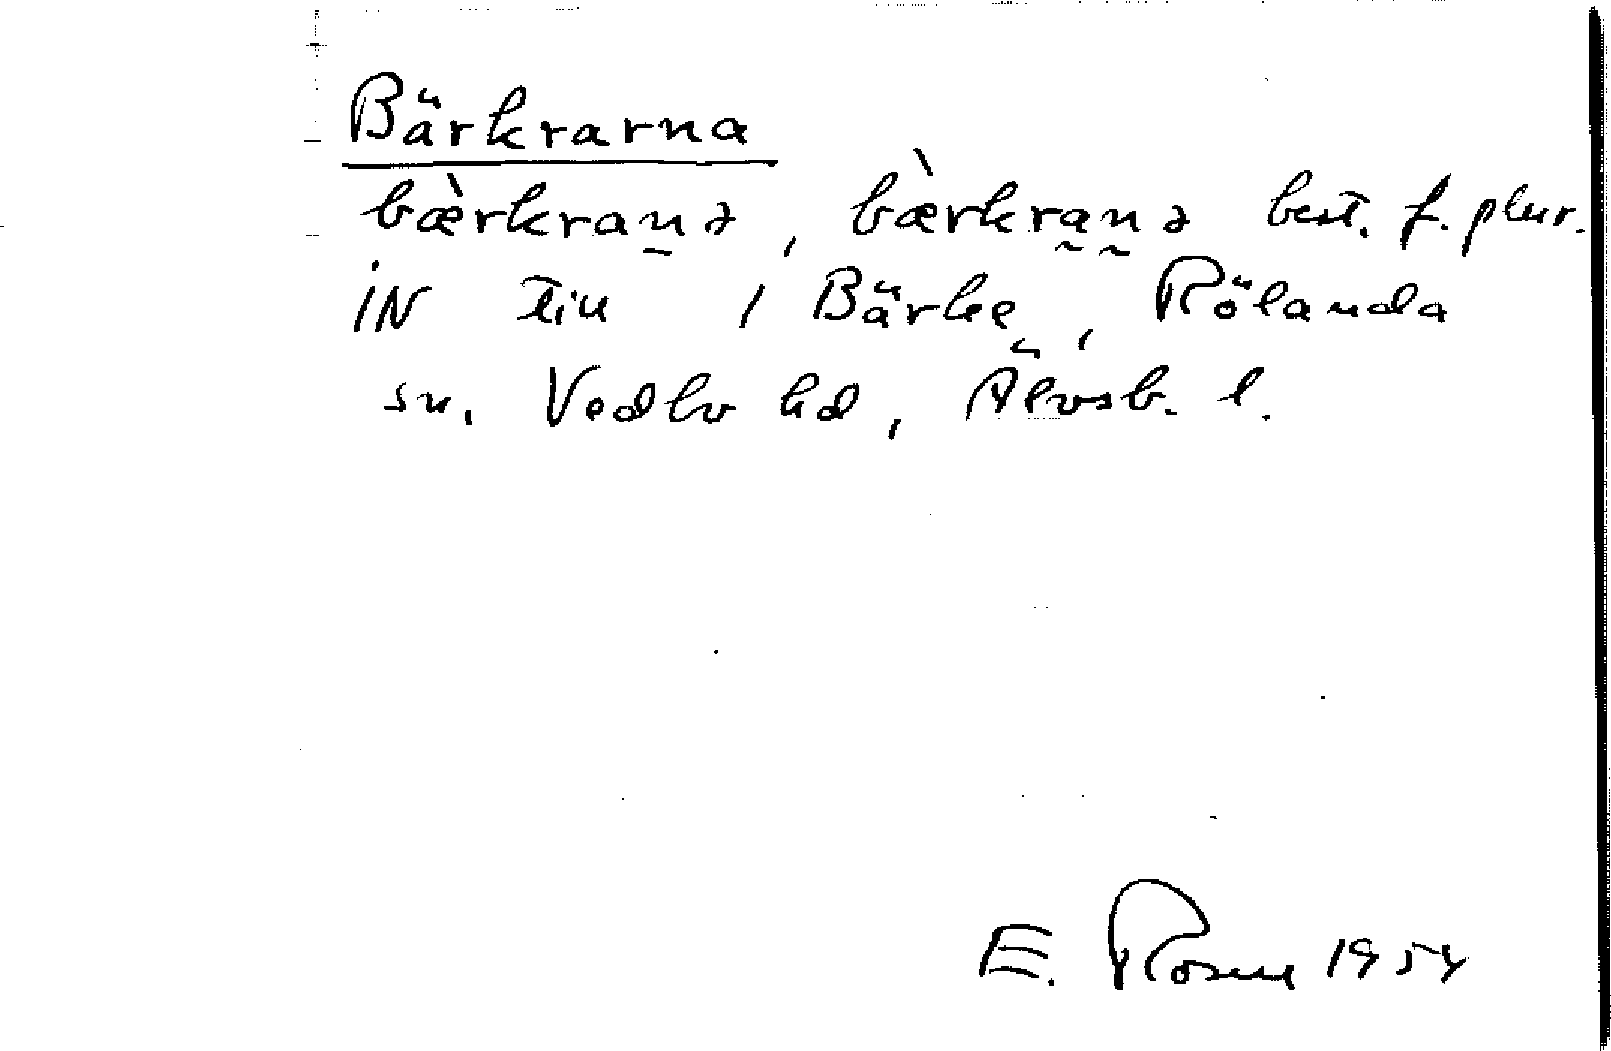 Bärkrarna
bæ̀rkraṉə, bæ̀rkra̰ṉ̰ə best. f. plur.
IN till / Bärke, Rölanda
sn. Vedbo hd, Älvsb. l.
E. 1954